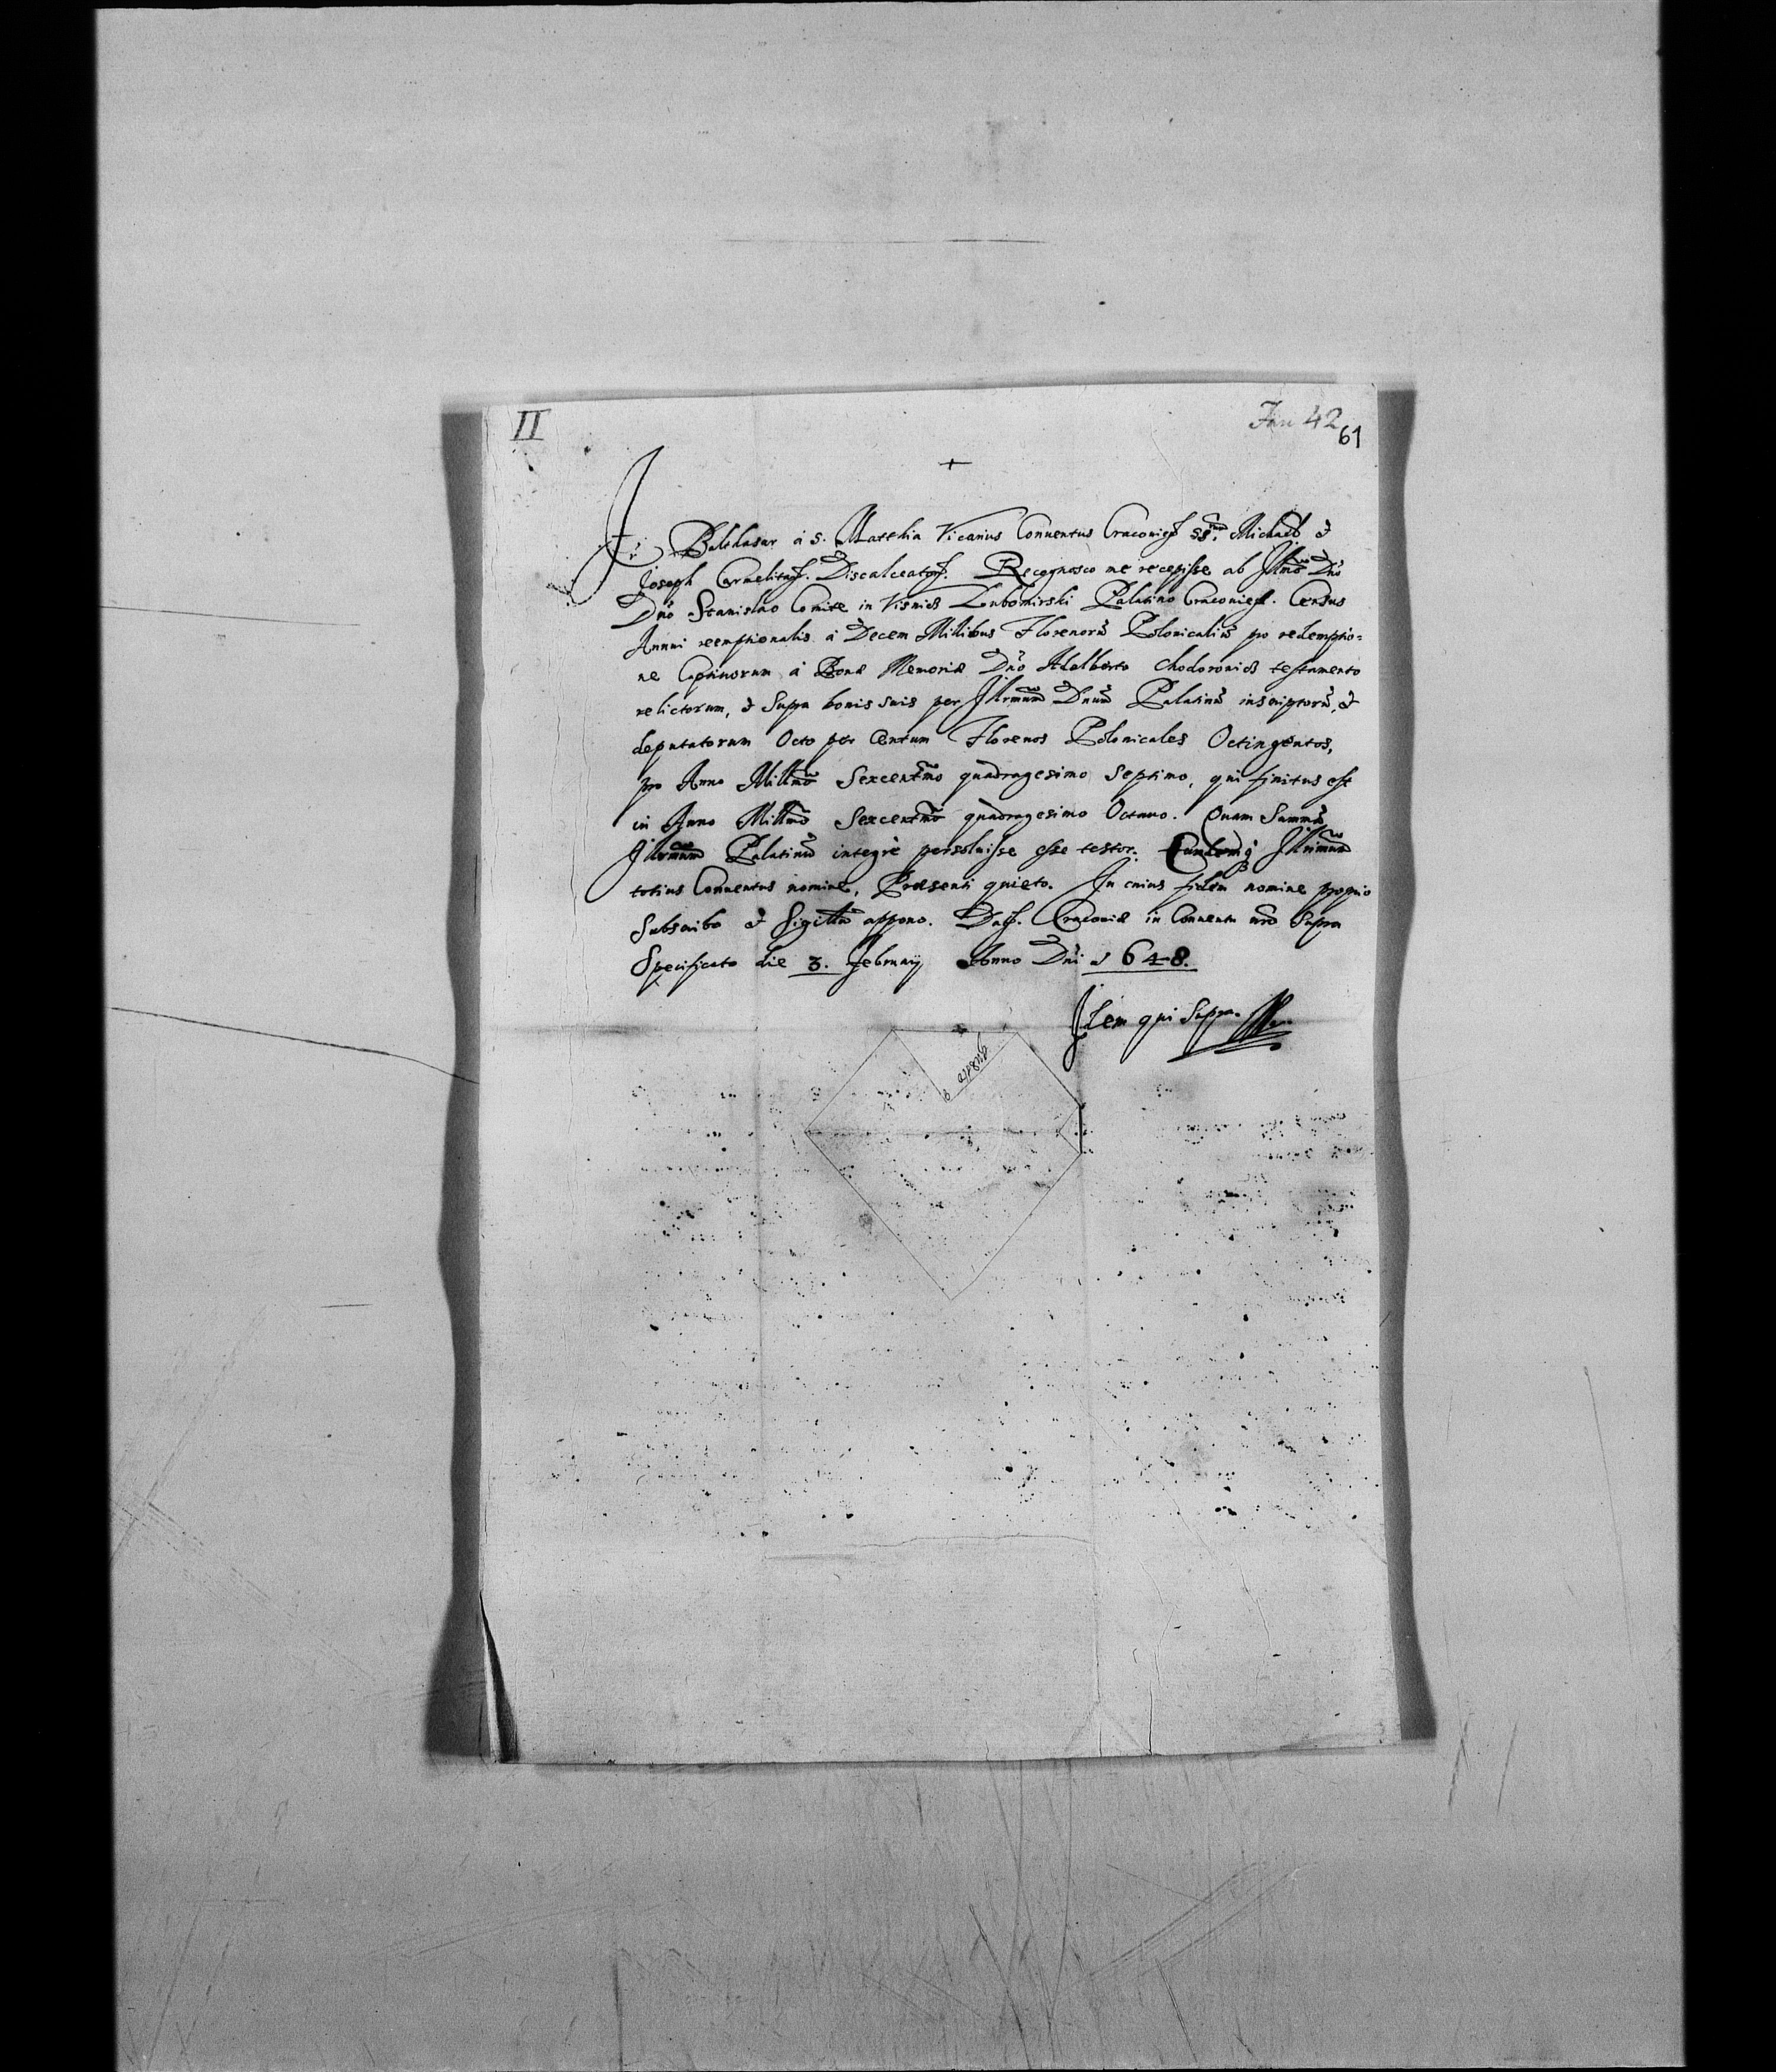 II
Fan 42
61
+
Fr. Balthasar à S. Matthia Vicarius Conuentus Cracouieñ SSrum Michaelis &
Joseph Carmelitarũ Discalceatorũ. Recognosco me recepisse ab Illmo Dño
Dño Stanislao Comite in Visnicz Lubomirski Palatino Cracouieñ. Census
Annui reemptionalis à Decem Millibus Florenorũ Polonicaliũ pro redemptio=
ne Captiuorum à Bonæ Memoriæ Dño Adalberto Chodorowicz testamento
relictorum, & supra bonis suis per Illrmum Dnum Palatinũ inscriptorũ, &
deputatorum Octo per Centum Florenos Polonicales Octingentos,
pro Anno Millmo Sexcentmo quadragesimo Septimo, qui finitus est
in Anno Millmo Sexcentmo quadragesimo Octauo. Quam Summã
Illrmum Palatinũ integrè persoluisse esse testor. Eundemq; Illrimum
totius Conuentus nomine, Præsenti quieto. In cuius fidem nomine proprio
Subscribo & Sigillũ appono. Datũ. Cracouiæ in Conuentu nrõ supra
Specificato die 3. Februarij Anno Dñi 1648.
Idem qui supra